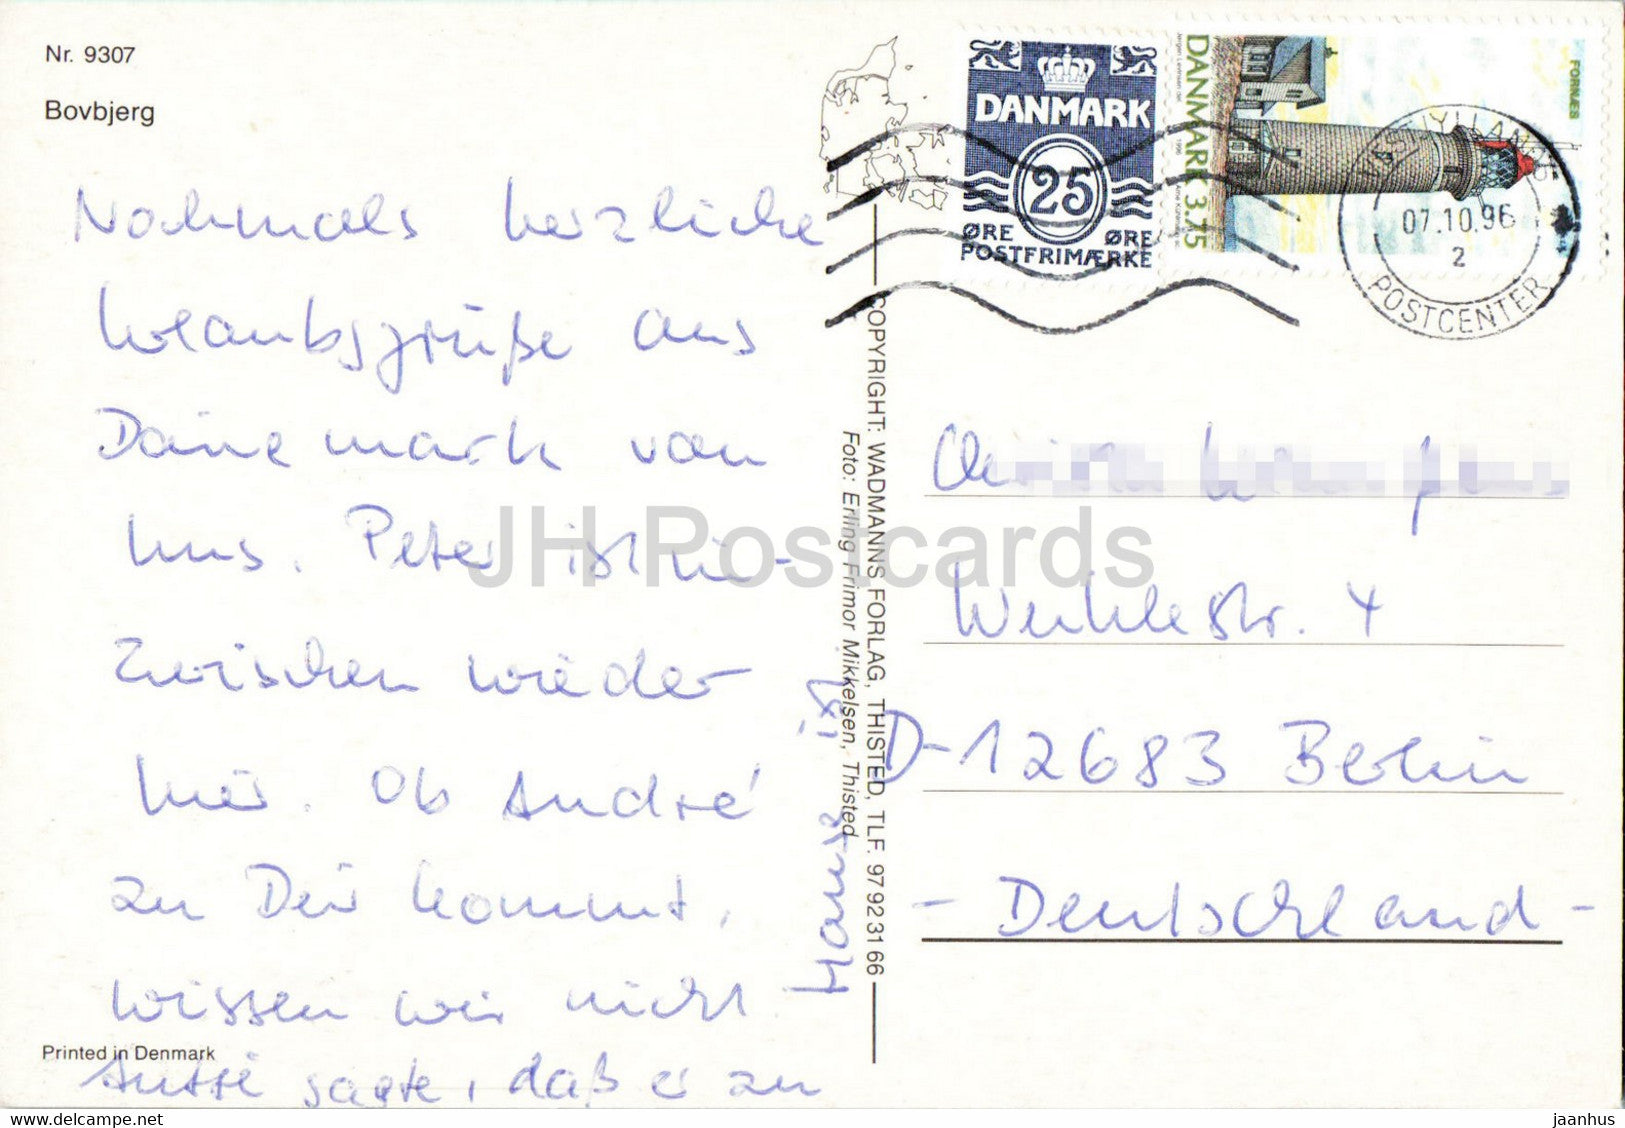 Nr. 9307
Bovbjerg
Nochmals herzliche
Urlaubsgrüße aus
Dänemark von
uns. Peter ist in-
zwischen wieder
hier. Ob André
zu Dir kommt,
wissen wir nicht
Antje sagte, daß er zu
Hause ist
Printed in Denmark
COPYRIGHT: WADMANNS FORLAG, THISTED, TLF. 97 92 31 66
Foto: Erling Frimor Mikkelsen, Thisted
DANMARK
25
ØRE ØRE
POSTFRIMÆRKE
DANMARK 3.75
FORNÆS
1996
07.10.96
2
POSTCENTER
4
D-12683 Berlin
- Deutschland -
JH Postcards
jaanhus